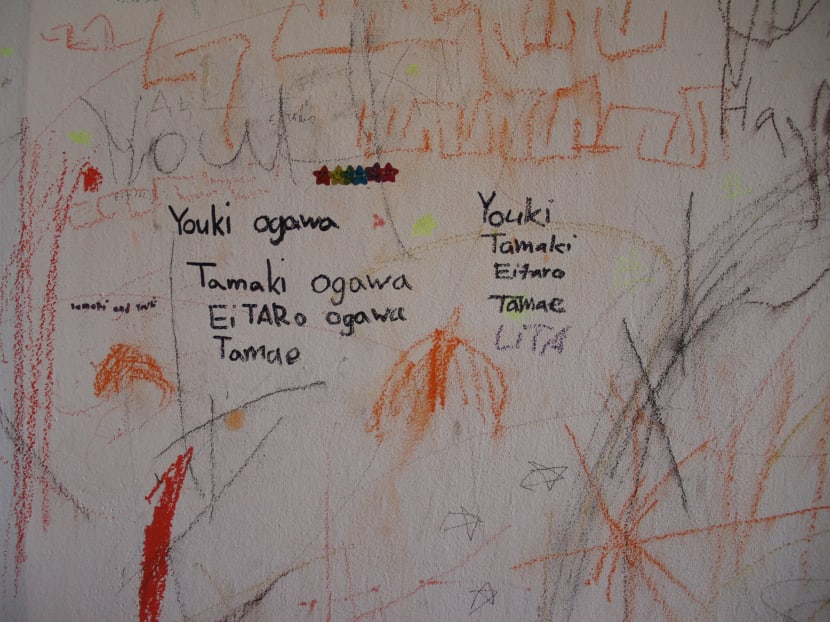 Youki
Hay
Youki ogawa
Tamaki ogawa
EiTARo ogawa
Tamae
Youki
Tamaki
Eitaro
Tamae
LiTA
tamaki and